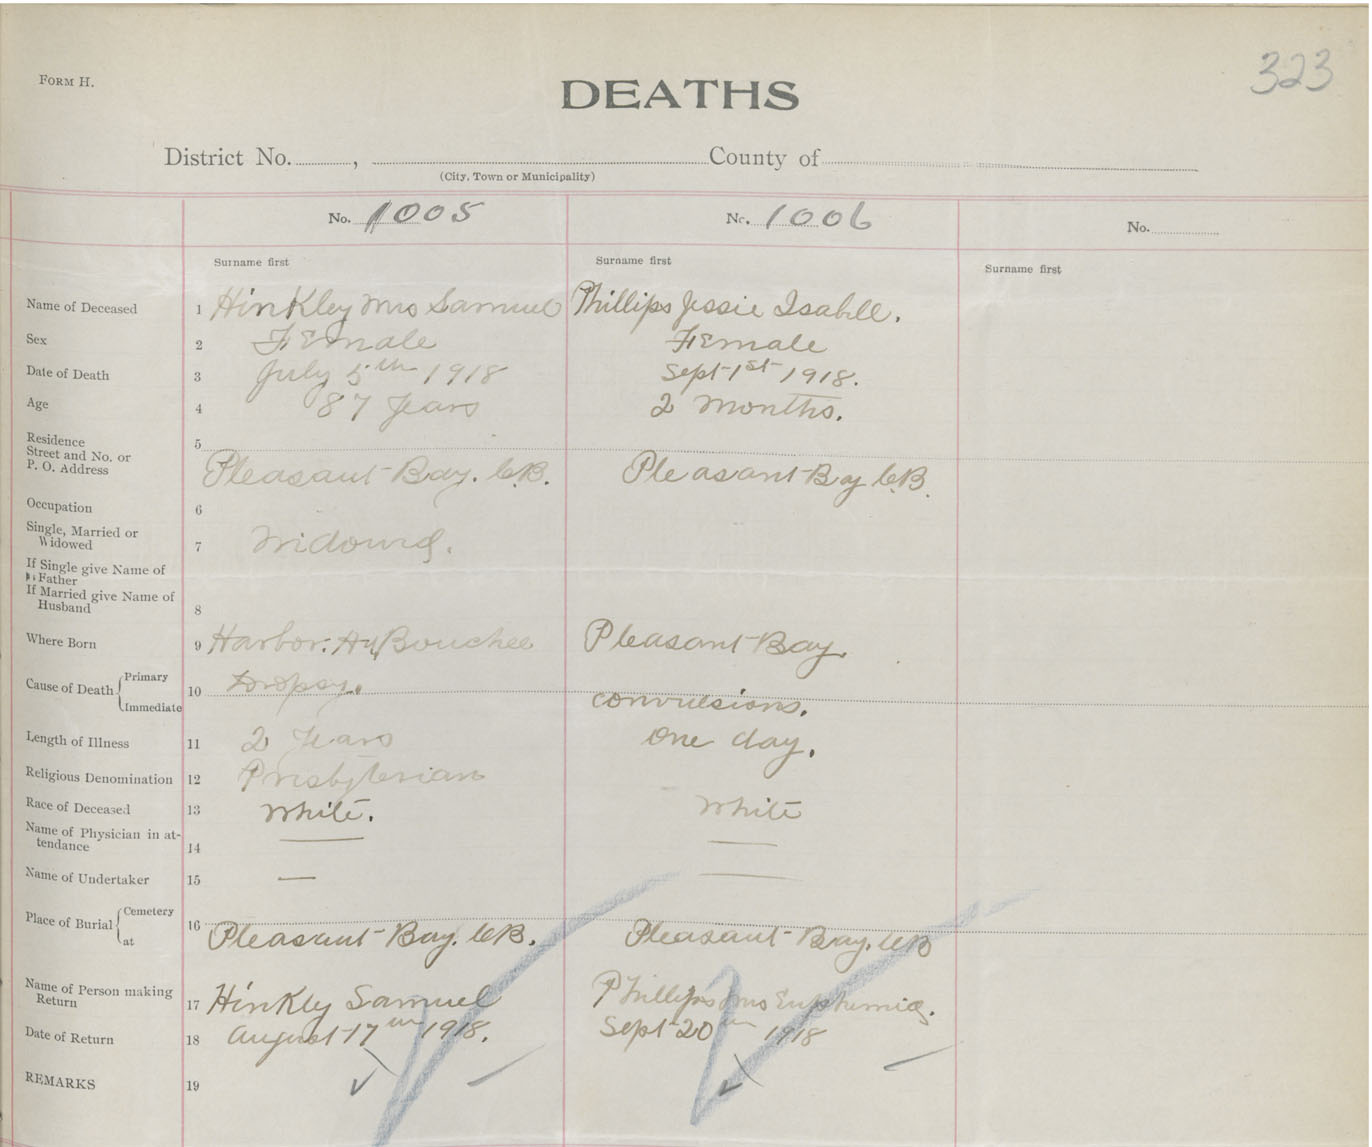 323
FORM H.
DEATHS
District No. , County of
(City, Town or Municipality)
No. 1005 No. 1006 No.
Surname first Surname first Surname first
Name of Deceased 1 Hinkley Mrs Samuel Phillips Jessie Isabell.
Sex 2 Female Female
Date of Death 3 July 5th 1918 Sept 1st 1918.
Age 4 87 Years 2 Months.
Residence 5
Street and No. or
P. O. Address Pleasant Bay. C.B. Pleasant Bay C.B.
Occupation 6
Single, Married or
Widowed 7 Widowed.
If Single give Name of
Father
If Married give Name of
Husband 8
Where Born 9 Harbor. Au Bouchee Pleasant Bay.
Cause of Death Primary 10 Dropsy.
Immediate convulsions.
Length of Illness 11 2 Years One day.
Religious Denomination 12 Presbyterian
Race of Deceased 13 White. White
Name of Physician in at-
tendance 14
Name of Undertaker 15
Place of Burial Cemetery 16
at Pleasant Bay. C.B. Pleasant Bay. C.B
Name of Person making
Return 17 Hinkly Samuel Phillips Mrs Euphemia.
Date of Return 18 August 17th 1918. Sept 20th 1918
REMARKS 19